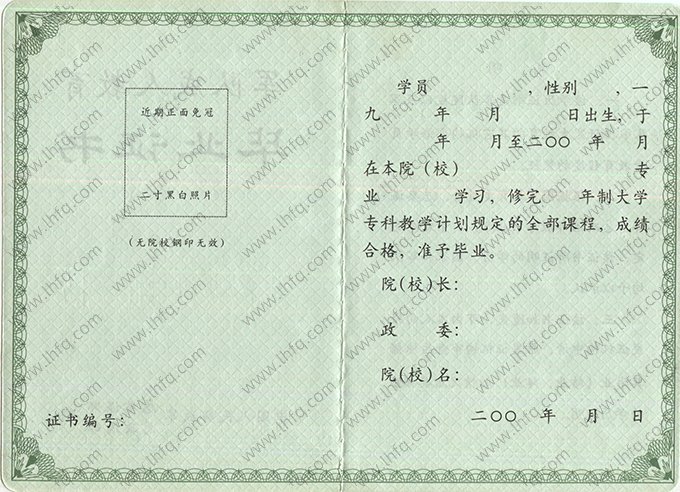 近期正面免冠
二寸黑白照片
(无院校钢印无效)
证书编号：
学员 ，性别 ，一
九 年 月 日出生，于
年 月至二〇〇 年 月
在本院（校） 专
业 学习，修完 年制大学
专科教学计划规定的全部课程，成绩
合格，准予毕业。
院(校)长：
政 委：
院(校)名：
二〇〇 年 月 日
www.lhfq.com